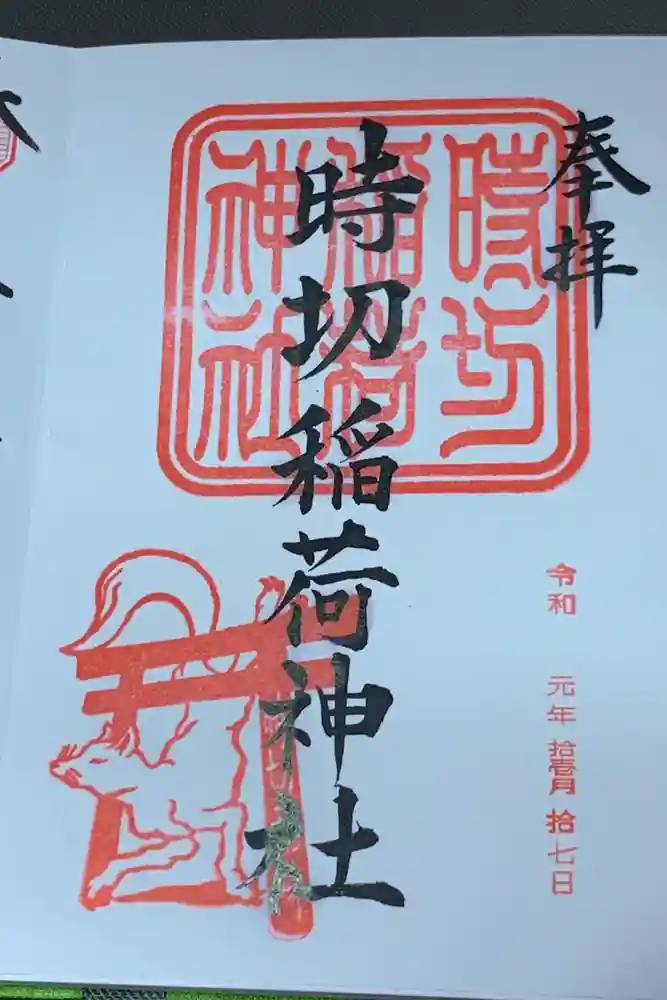 奉拝
時切稲荷神社
時切
稲荷
神社
令和 元年 拾壱月 拾七日